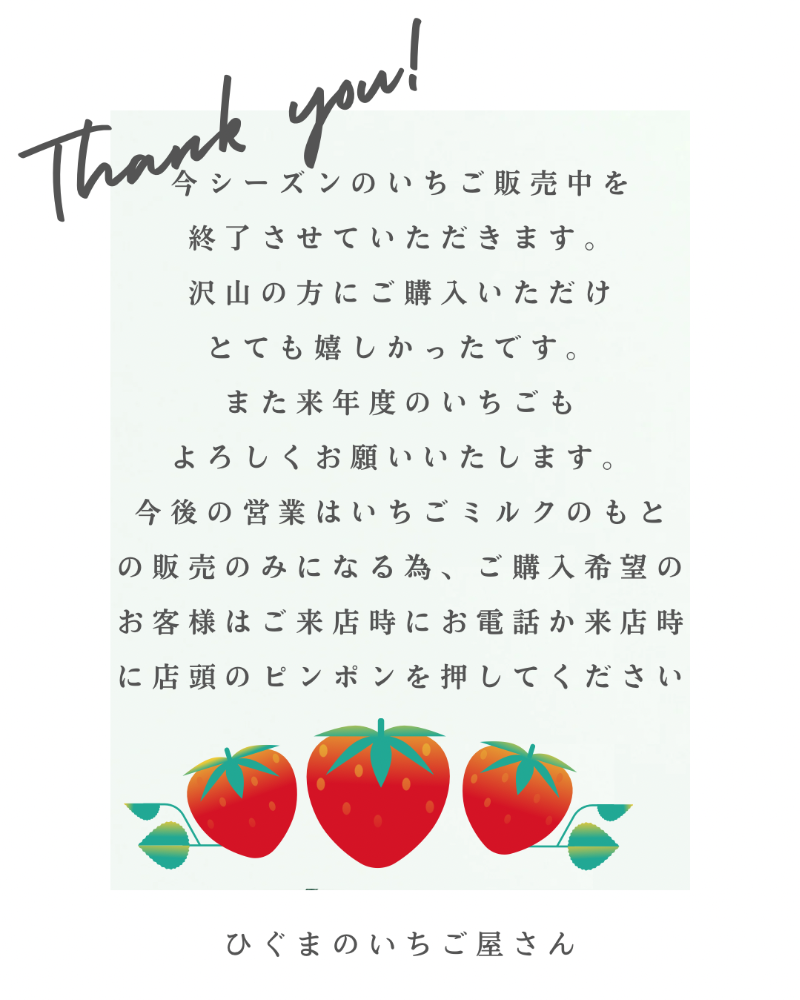 Thank you!
今シーズンのいちご販売中を
終了させていただきます。
沢山の方にご購入いただけ
とても嬉しかったです。
また来年度のいちごも
よろしくお願いいたします。
今後の営業はいちごミルクのもと
の販売のみになる為、ご購入希望の
お客様はご来店時にお電話か来店時
に店頭のピンポンを押してください
ひぐまのいちご屋さん